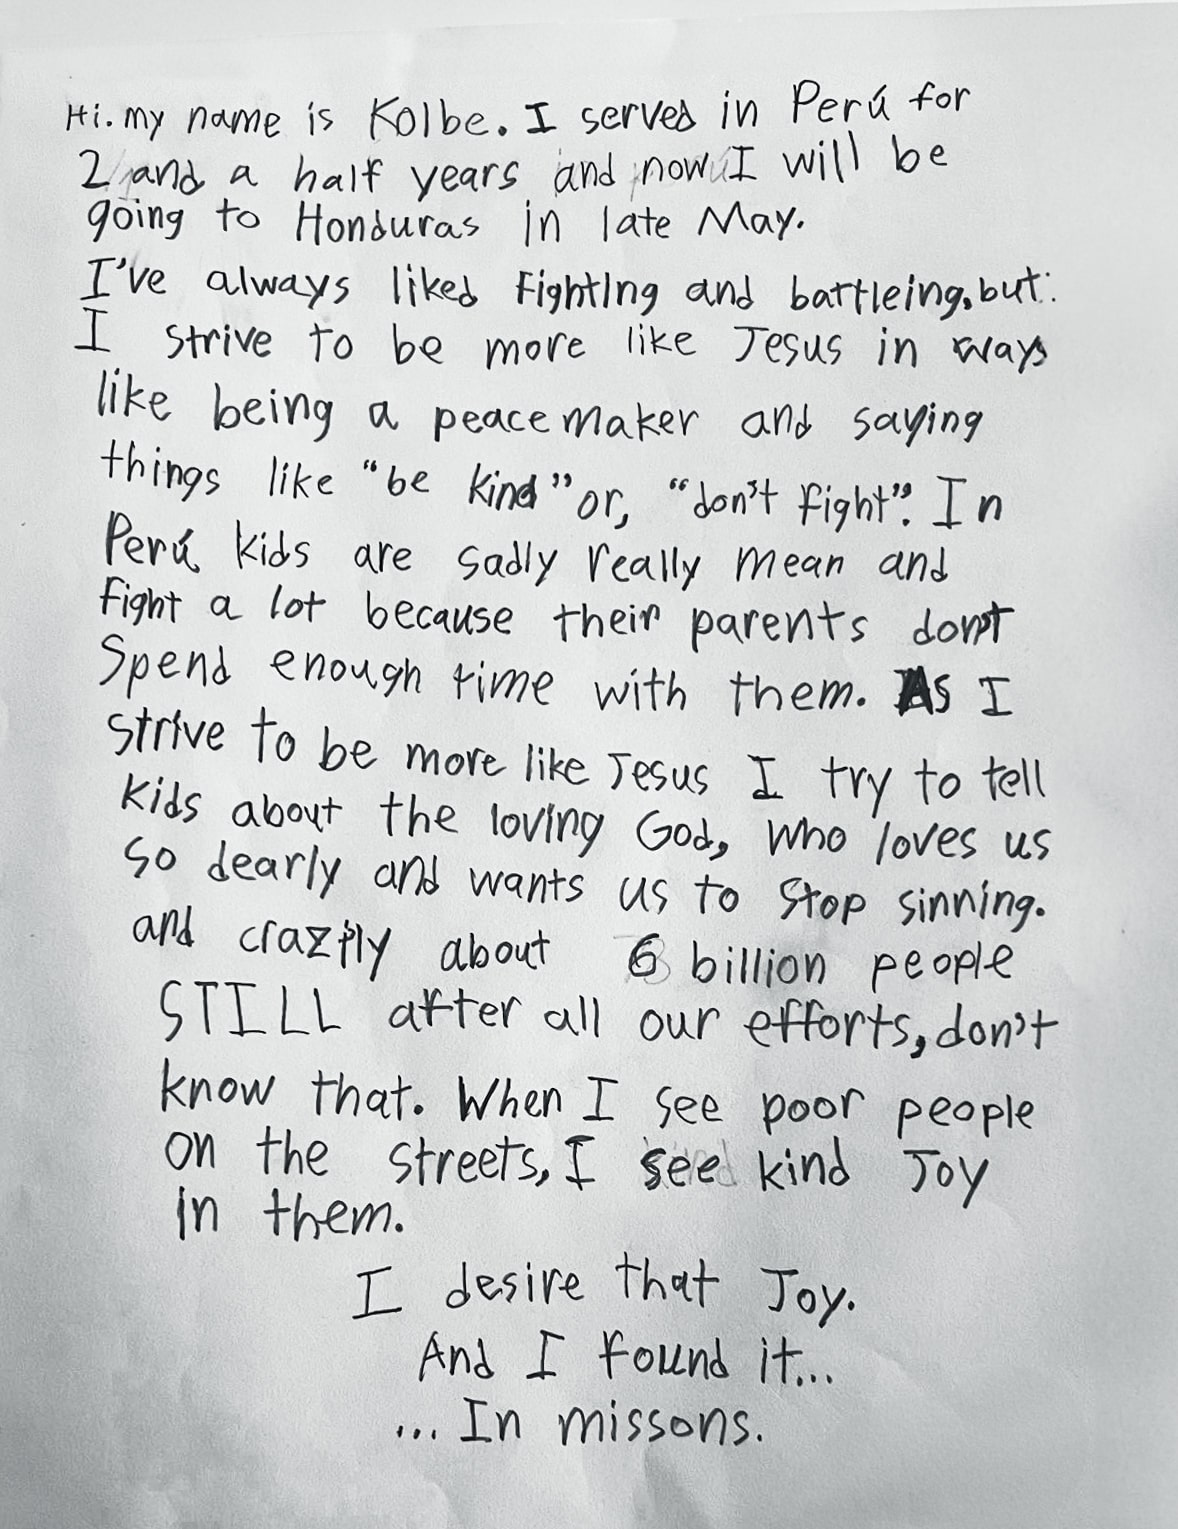 Hi. my name is Kolbe. I served in Perú for
2 and a half years and now I will be
going to Honduras in late May.
I've always liked fighting and battleing, but
I strive to be more like Jesus in ways
like being a peacemaker and saying
things like "be kind" or, "don't fight". In
Perú kids are sadly really mean and
fight a lot because their parents don't
Spend enough time with them. As I
strive to be more like Jesus I try to tell
kids about the loving God, who loves us
so dearly and wants us to stop sinning.
and crazily about 6 billion people
STILL after all our efforts, don't
know that. When I see poor people
on the streets, I see kind Joy
in them.
I desire that Joy.
And I found it...
... In missons.